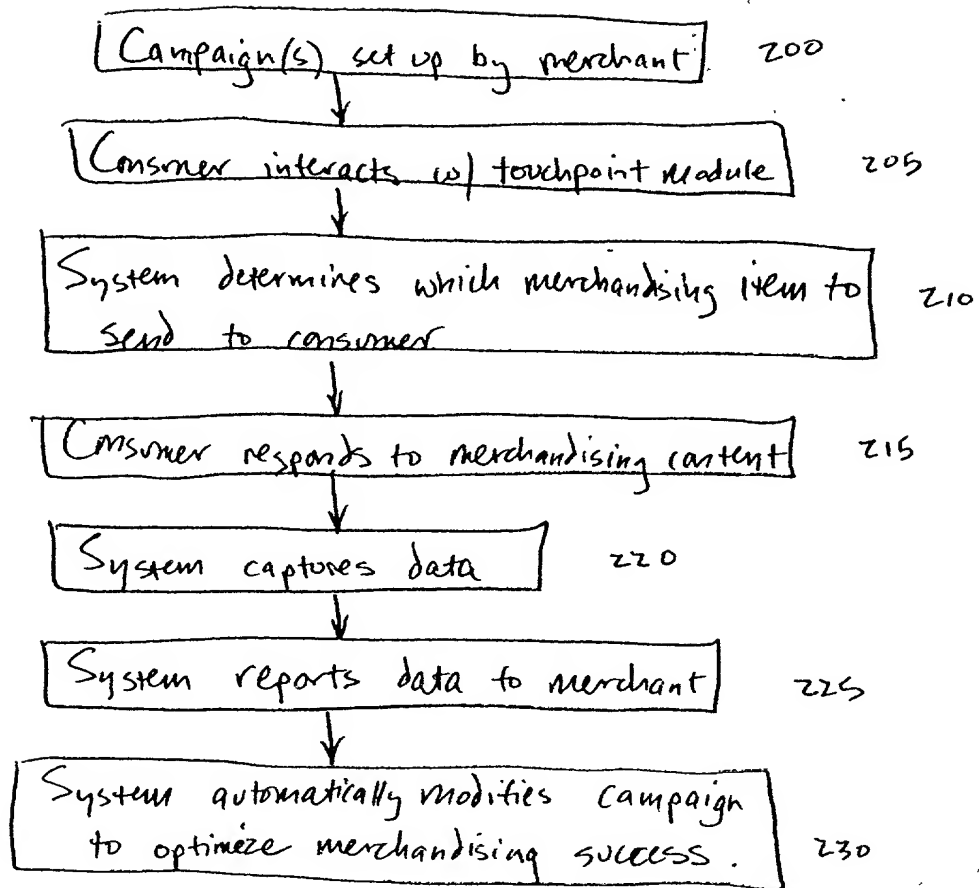 Campaign(s) set up by merchant 200
Consumer interacts w/ touchpoint module 205
System determines which merchandising item to
send to consumer 210
Consumer responds to merchandising content 215
System captures data 220
System reports data to merchant 225
System automatically modifies campaign
to optimize merchandising success. 230